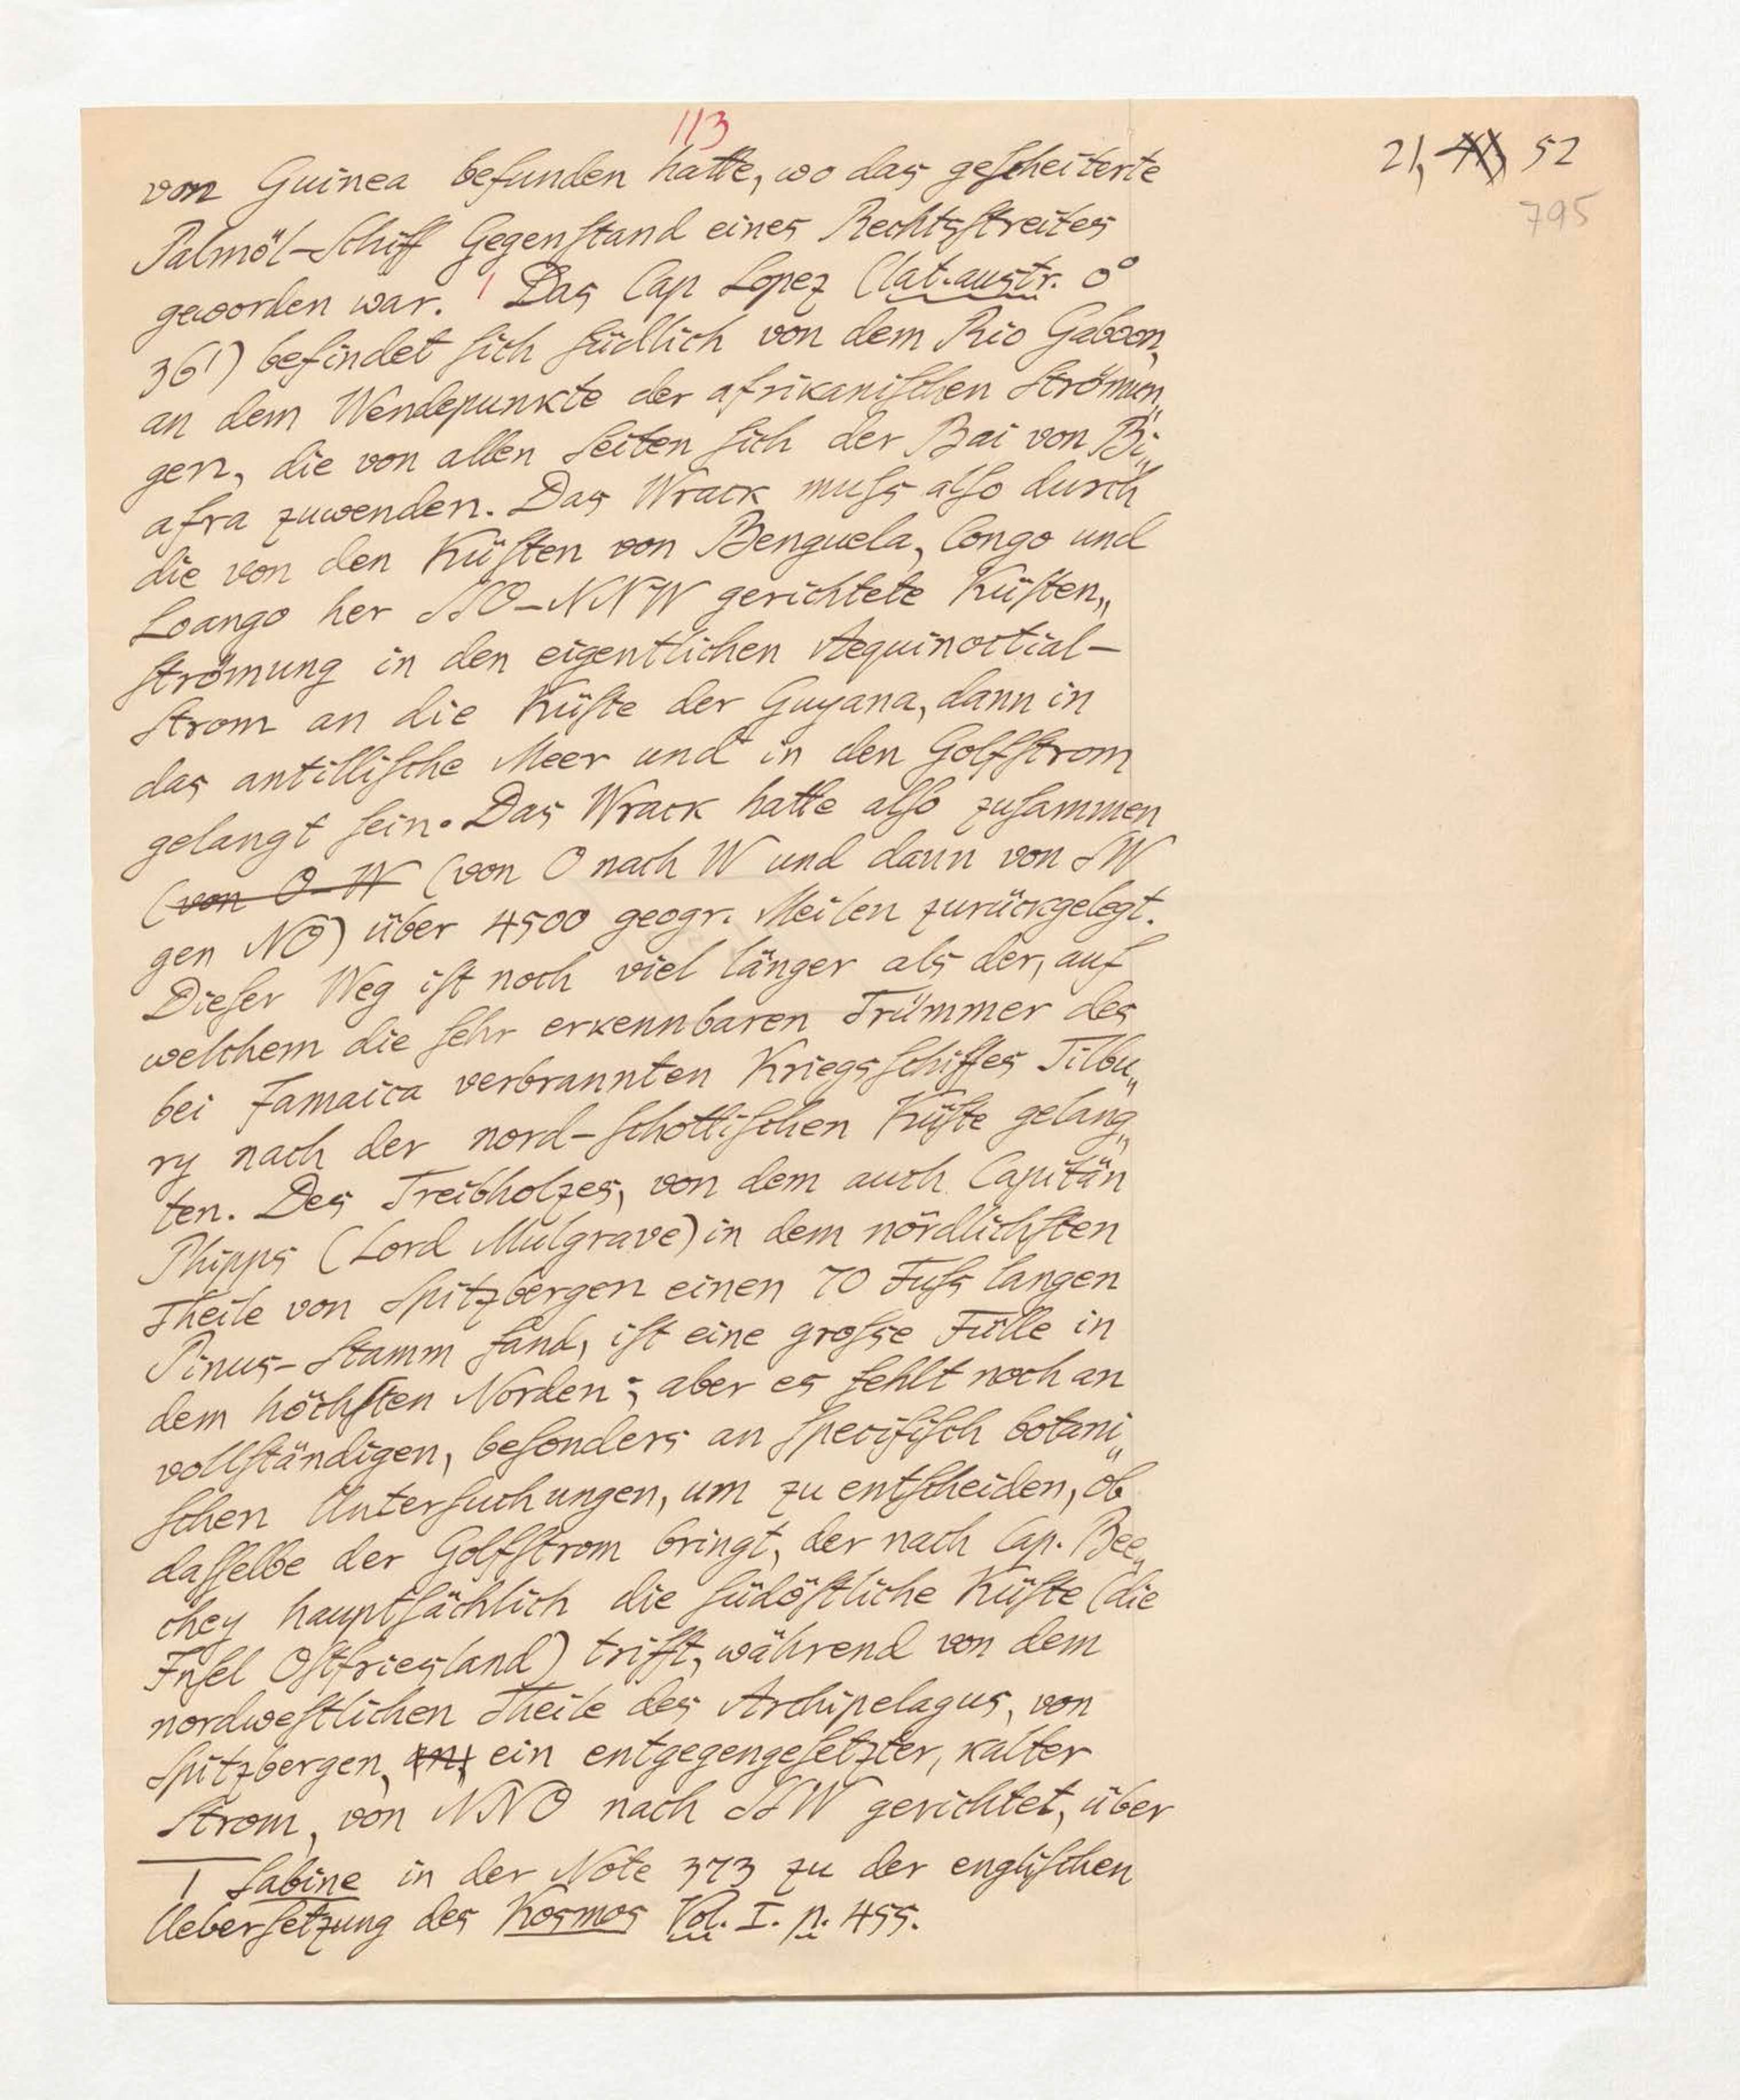 113
21, 52
795
von Guinea befunden hatte, wo das gescheiterte
Palmöl-Schiff Gegenstand eines Rechtsstreites
geworden war. 1 Das Cap Lopez (lat. austr. 0°
36') befindet sich südlich von dem Rio Gaboon,
an dem Wendepunkte der afrikanischen Strömun„
gen, die von allen Seiten sich der Bai von Bi„
afra zuwenden. Das Wrack muss also durch
die von den Küsten von Benguela, Congo und
Loango her SSO-NNW gerichtete Küsten„
strömung in den eigentlichen Aequinoctial-
Strom an die Küste der Guyana, dann in
das antillische Meer und in den Golfstrom
gelangt sein. Das Wrack hatte also zusammen
(von O-W (von O nach W und dann von SW
gen NO) über 4500 geogr. Meilen zurückgelegt.
Dieser Weg ist noch viel länger als der, auf
welchem die sehr erkennbaren Trümmer des
bei Jamaica verbrannten Kriegsschiffes Tilbu„
ry nach der nord-schottischen Küste gelang„
ten. Des Treibholzes, von dem auch Capitän
Phipps (Lord Mulgrave) in dem nördlichsten
Theile von Spitzbergen einen 70 Fuss langen
Pinus-Stamm fand, ist eine grosse Fülle in
dem höchsten Norden; aber es fehlt noch an
vollständigen, besonders an specifisch botani„
schen Untersuchungen, um zu entscheiden, ob
dasselbe der Golfstrom bringt, der nach Cap. Bee„
chey hauptsächlich die südöstliche Küste (die
Insel Ostfriesland) trifft, während von dem
nordwestlichen Theile des Archipelagus, von
Spitzbergen, ein entgegengesetzter, kalter
Strom, von NNO nach SSW gerichtet, über
1 Sabine in der Note 373 zu der englischen
Uebersetzung des Kosmos Vol. I. p. 455.